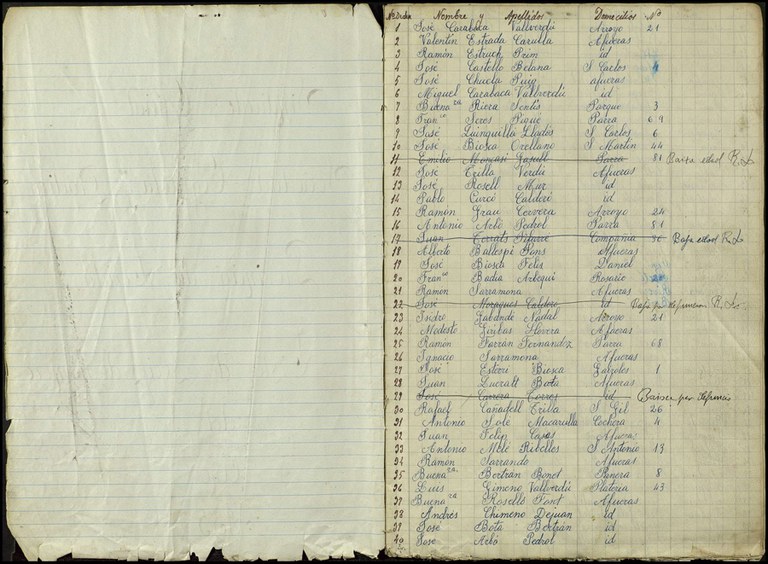 Nº Orden Nombre y Apellidos Domicilios Nº
1 José Carabaca Vallverdú Arroyo 21
2 Valentin Estrada Carulla Afueras
3 Ramón Estruch Prim id
4 José Castelló Belana S Carlos 4
5 José Chueca Puig afueras
6 Miguel Carabaca Vallverdú id
7 Buenavra Riera Sentis Parque 3
8 Franco Seros Piqué Parra 69
9 José Quinquilla Llados S Carlos 6
10 José Biosca Orellano S Martin 44
11 Emilio Jasull Parra 81 Baixa edad R. L.
12 José Trilla Verdú Afueras
13 José Rosell Mur id
14 Pablo Curcó Calderó id
15 Ramón Grau Cervera Arroyo 24
16 Antonio Arbó Pedrol Parra 81
17 Juan Terrats Pifarré Compañia 36 Baja edad R. L.
18 Alberto Ballespi Pons Afueras
19 José Biosca Felis Daniel
20 Franco Badia Arbequi Rosario
21 Ramon Sarramona Afueras
22 José Moragues Calderó id Baja por defuncion R. L.
23 Isidro Nadal Arroyo 21
24 Modesto Llovera Afueras
25 Ramón Farrán Fernandez Parra 68
26 Ignacio Sarramona Afueras
27 José Esterri Biosca 1
28 Juan Bota Afueras
29 José Carrera Torres id Baixa per defunció
30 Rafael Canadell Trilla S Gil 26
31 Antonio Solé Macarulla Cochera 4
32 Juan Felip Casas Afueras
33 Antonio Melé Ribelles S Antonio 19
34 Ramón Sarrando Afueras
35 Buenavra Bertran Bonet Panera 8
36 Luis Gimeno Vallverdú Plateria 43
37 Buenavra Roselló Font Afueras
38 Andrés Chimeno Dejuan id
39 José Bota Bertran id
40 José Arbó Pedrol id